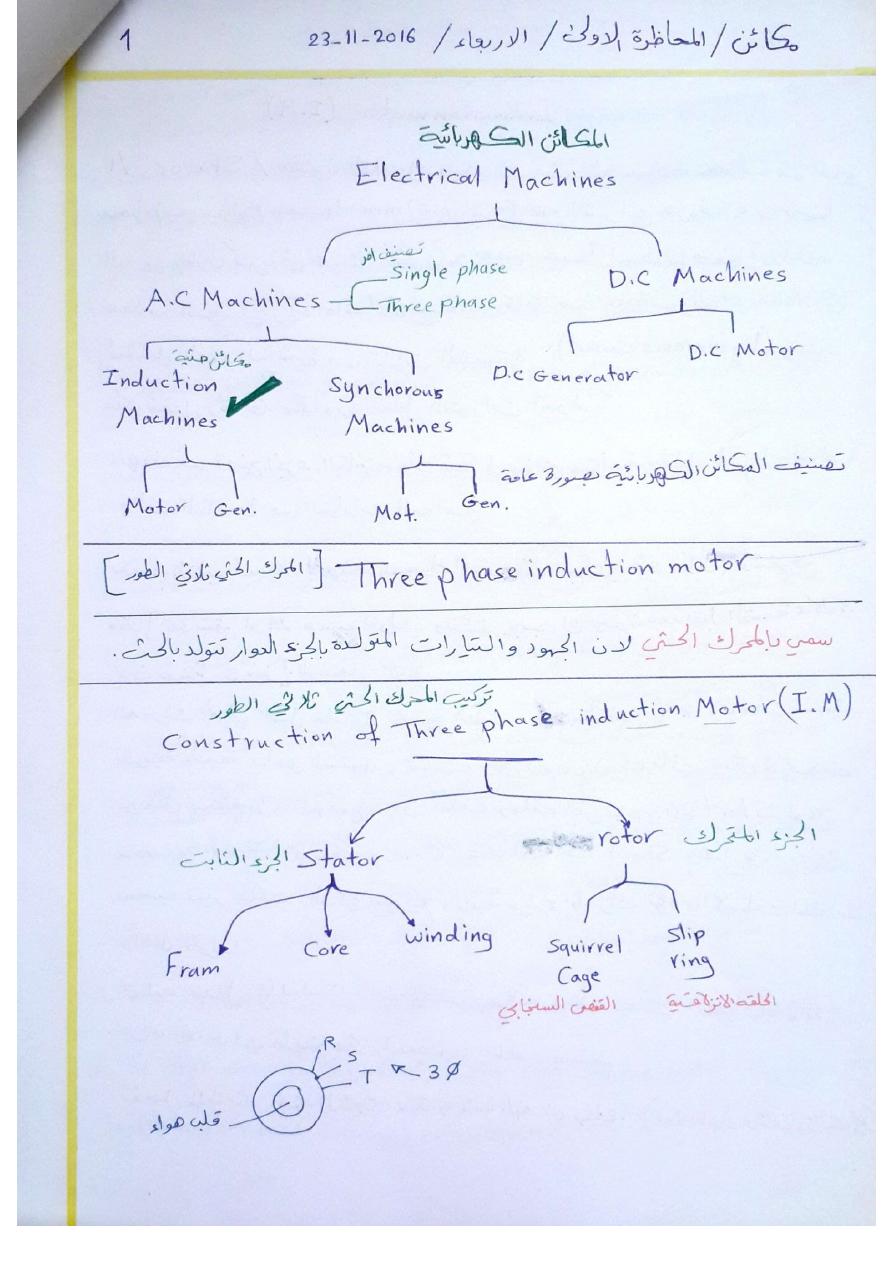 مكائن / المحاظرة الاولى / الاربعاء / 23-11-2016
1
المكائن الكهربائية
Electrical Machines
تصنيف اخر
Single phase
Three phase
A.C Machines
D.C Machines
D.C Generator
D.C Motor
مكائن حثية
Induction
Machines
Synchorous
Machines
Motor
Gen.
Mot.
Gen.
تصنيف المكائن الكهربائية بصورة عامة
Three phase induction motor [المحرك الحثي ثلاثي الطور]
سمي بالمحرك الحثي لان الجهود والتيارات المتولدة بالجزء الدوار تتولد بالحث.
تركيب المحرك الحثي ثلاثي الطور
Construction of Three phase induction Motor (I.M)
Stator الجزء الثابت
rotor الجزء المتحرك
Fram
Core
winding
Squirrel
Cage
القفص السنجابي
Slip
ring
الحلقه الانزلاقية
R
S
T
3Ø
قلب هواء